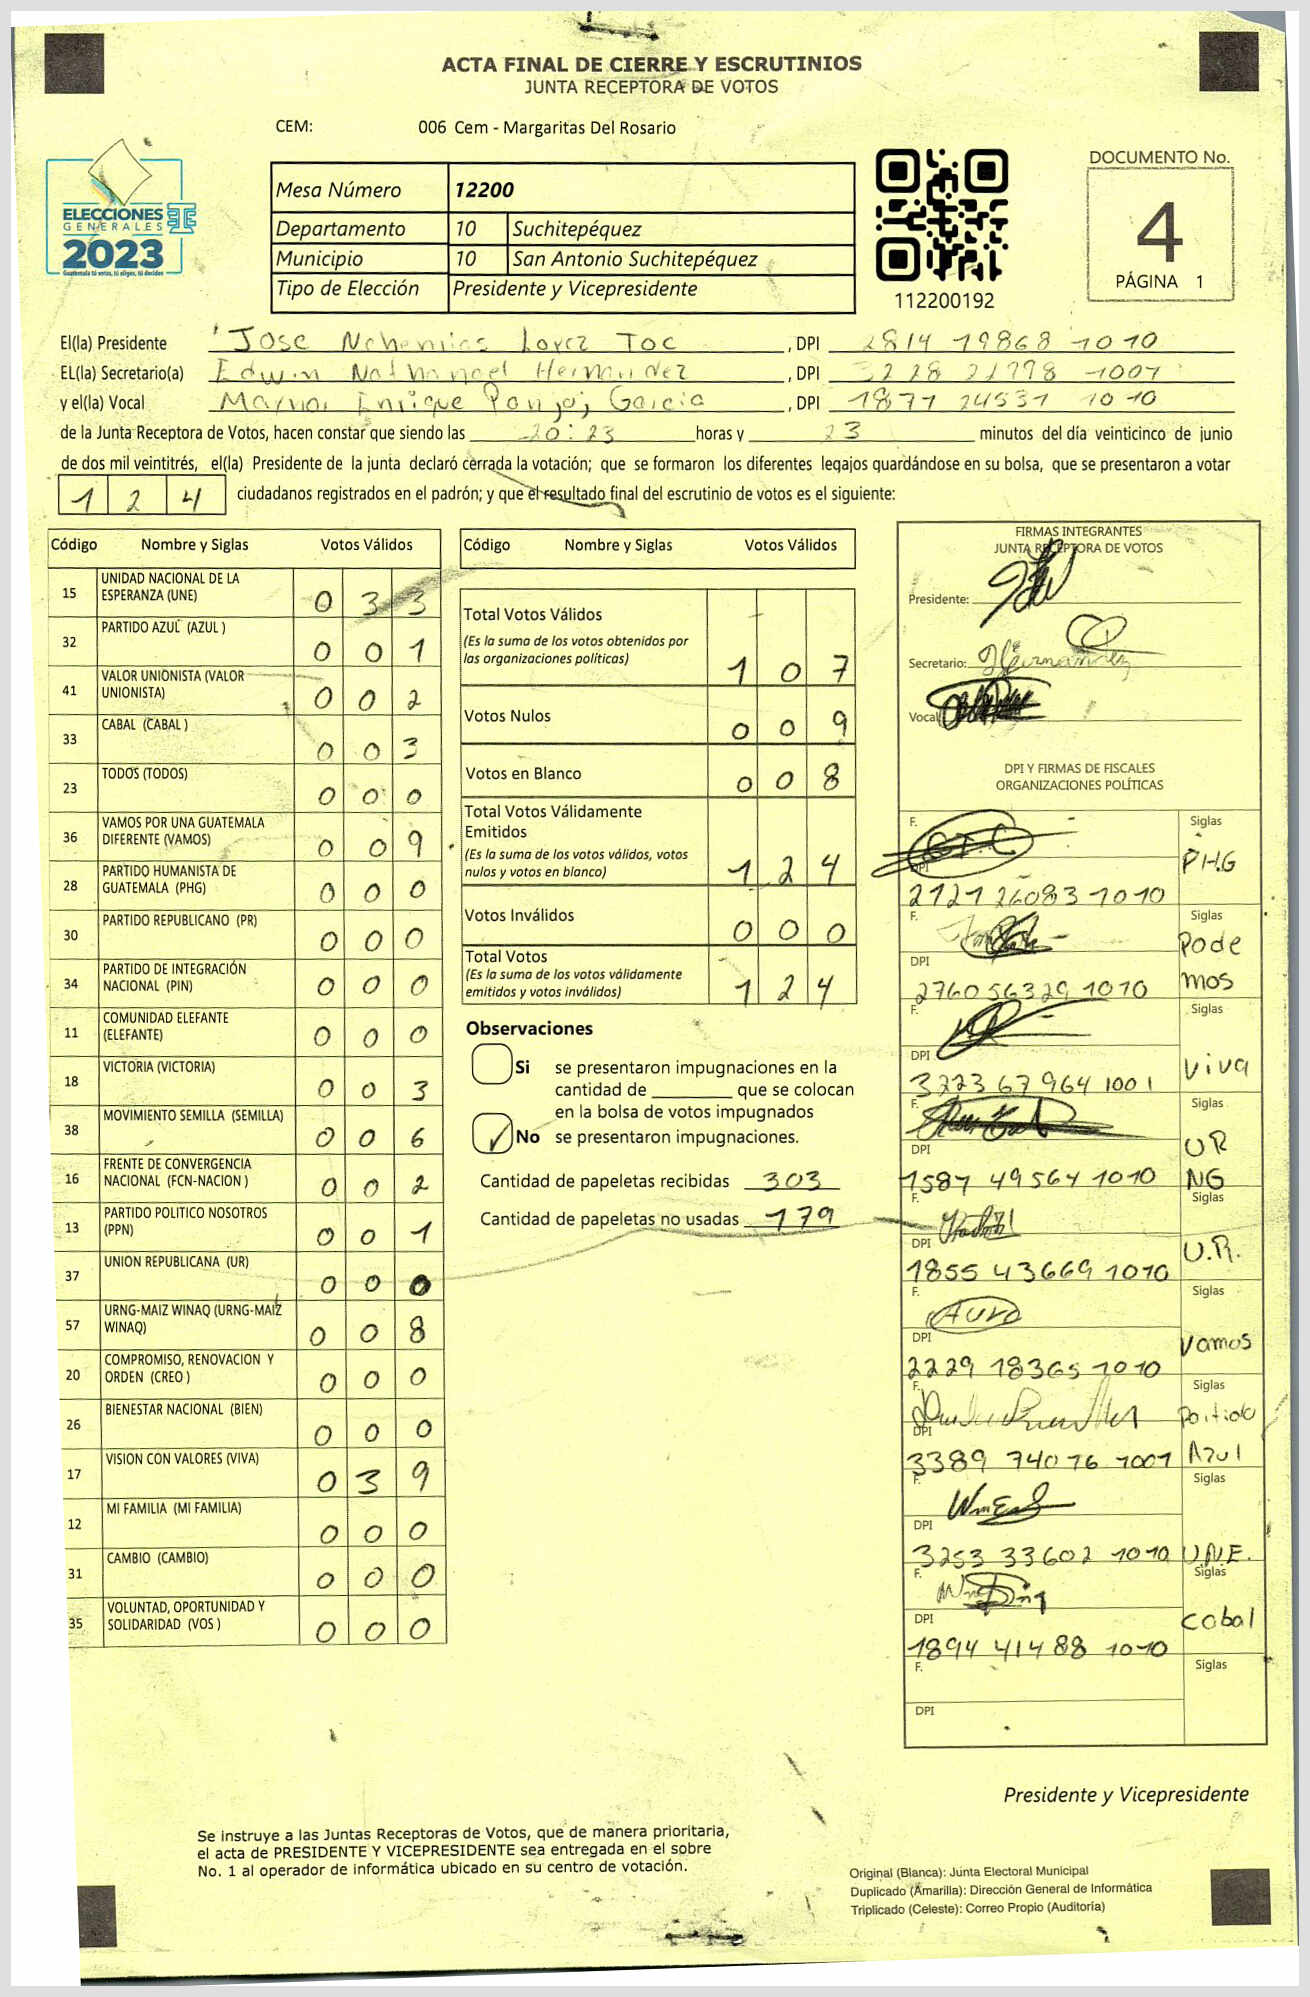 ACTA FINAL DE CIERRE Y ESCRUTINIOS
JUNTA RECEPTORA DE VOTOS
CEM: 006 Cem - Margaritas Del Rosario
ELECCIONES
GENERALES
2023
Guatemala tú votas, tú eliges, tú decides
Mesa Número 12200
Departamento 10 Suchitepéquez
Municipio 10 San Antonio Suchitepéquez
Tipo de Elección Presidente y Vicepresidente
112200192
DOCUMENTO No.
4
PÁGINA 1
El(la) Presidente Jose Nehemias Lopez Toc , DPI 2814 19868 1010
EL(la) Secretario(a) Edwin Nathanael Hernandez , DPI 3228 21778 1001
y el(la) Vocal Maynor Enrique Garcia , DPI 1877 24531 1010
de la Junta Receptora de Votos, hacen constar que siendo las 20:23 horas y 23 minutos del día veinticinco de junio
de dos mil veintitrés, el(la) Presidente de la junta declaró cerrada la votación; que se formaron los diferentes legajos guardándose en su bolsa, que se presentaron a votar
1 2 4 ciudadanos registrados en el padrón; y que el resultado final del escrutinio de votos es el siguiente:
Código Nombre y Siglas Votos Válidos
15 UNIDAD NACIONAL DE LA ESPERANZA (UNE) 0 3 3
32 PARTIDO AZUL (AZUL ) 0 0 1
41 VALOR UNIONISTA (VALOR UNIONISTA) 0 0 2
33 CABAL (CABAL ) 0 0 3
23 TODOS (TODOS) 0 0 0
36 VAMOS POR UNA GUATEMALA DIFERENTE (VAMOS) 0 0 9
28 PARTIDO HUMANISTA DE GUATEMALA (PHG) 0 0 0
30 PARTIDO REPUBLICANO (PR) 0 0 0
34 PARTIDO DE INTEGRACIÓN NACIONAL (PIN) 0 0 0
11 COMUNIDAD ELEFANTE (ELEFANTE) 0 0 0
18 VICTORIA (VICTORIA) 0 0 3
38 MOVIMIENTO SEMILLA (SEMILLA) 0 0 6
16 FRENTE DE CONVERGENCIA NACIONAL (FCN-NACION ) 0 0 2
13 PARTIDO POLITICO NOSOTROS (PPN) 0 0 1
37 UNION REPUBLICANA (UR) 0 0 0
57 URNG-MAIZ WINAQ (URNG-MAIZ WINAQ) 0 0 8
20 COMPROMISO, RENOVACION Y ORDEN (CREO ) 0 0 0
26 BIENESTAR NACIONAL (BIEN) 0 0 0
17 VISION CON VALORES (VIVA) 0 3 9
12 MI FAMILIA (MI FAMILIA) 0 0 0
31 CAMBIO (CAMBIO) 0 0 0
35 VOLUNTAD, OPORTUNIDAD Y SOLIDARIDAD (VOS ) 0 0 0
Código Nombre y Siglas Votos Válidos
Total Votos Válidos
(Es la suma de los votos obtenidos por
las organizaciones políticas) 1 0 7
Votos Nulos 0 0 9
Votos en Blanco 0 0 8
Total Votos Válidamente
Emitidos
(Es la suma de los votos válidos, votos
nulos y votos en blanco) 1 2 4
Votos Inválidos 0 0 0
Total Votos
(Es la suma de los votos válidamente
emitidos y votos inválidos) 1 2 4
Observaciones
Si se presentaron impugnaciones en la
cantidad de ________ que se colocan
en la bolsa de votos impugnados
No se presentaron impugnaciones.
Cantidad de papeletas recibidas 303
Cantidad de papeletas no usadas 179
FIRMAS INTEGRANTES
JUNTA RECEPTORA DE VOTOS
Presidente:
Secretario: Hernandez
Vocal
DPI Y FIRMAS DE FISCALES
ORGANIZACIONES POLÍTICAS
F. Siglas
DPI 2727 26083 1010 PHG
F. Siglas
DPI 2760 56329 1010 Podemos
F. Siglas
DPI 3223 67964 1001 Viva
F. Siglas
DPI 1587 49564 1010 URNG
F. Siglas
DPI 1855 43669 1010 U.R.
F. Siglas
DPI 2229 18365 1010 Vamos
F. Siglas
DPI 3389 74076 1001 Partido Azul
F. Siglas
DPI 3253 33602 1010 U.N.E.
F. Siglas
DPI 1894 41488 1010 Cabal
F. Siglas
DPI
Presidente y Vicepresidente
Se instruye a las Juntas Receptoras de Votos, que de manera prioritaria,
el acta de PRESIDENTE Y VICEPRESIDENTE sea entregada en el sobre
No. 1 al operador de informática ubicado en su centro de votación.
Original (Blanca): Junta Electoral Municipal
Duplicado (Amarilla): Dirección General de Informática
Triplicado (Celeste): Correo Propio (Auditoría)